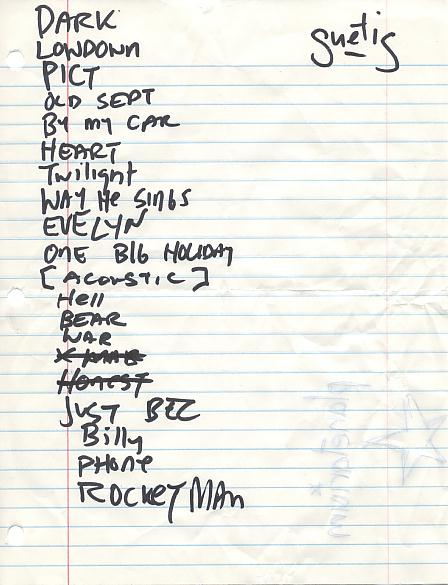 DARK
LOWDOWN
PICT
OLD SEPT
By my CAR
HEART
Twilight
WAY He SINGS
EVELYN
ONE BIG HOLIDAY
[ACOUSTIC]
Hell
BEAR
WAR
HONEST
JUST BEC
Billy
PHONE
ROCKEY MAN